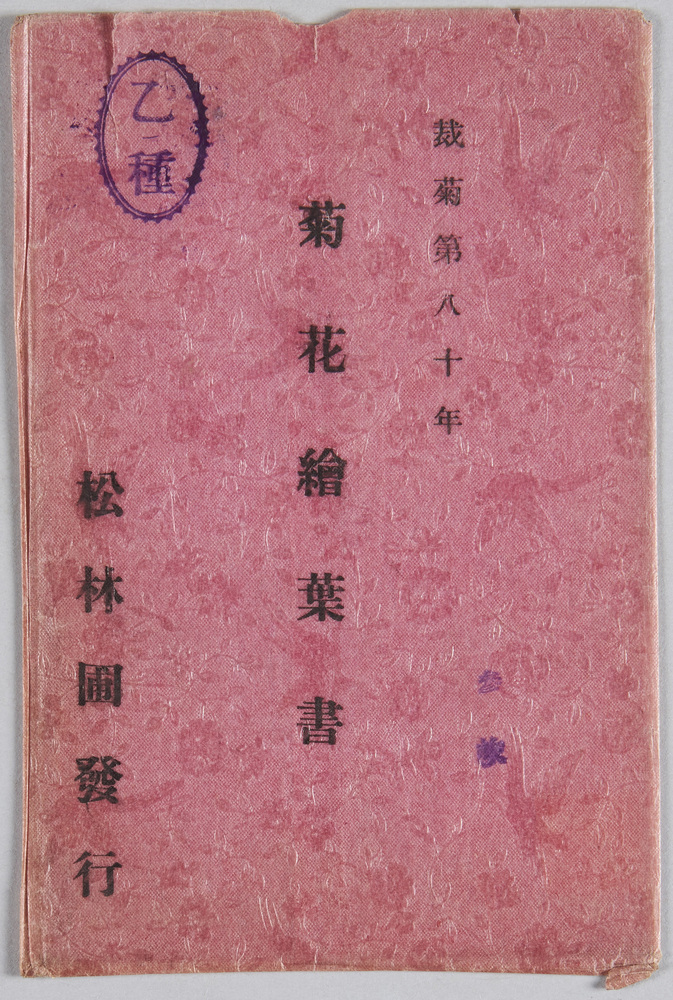 裁菊第八十年
菊花繪葉書
乙種
松林圃發行